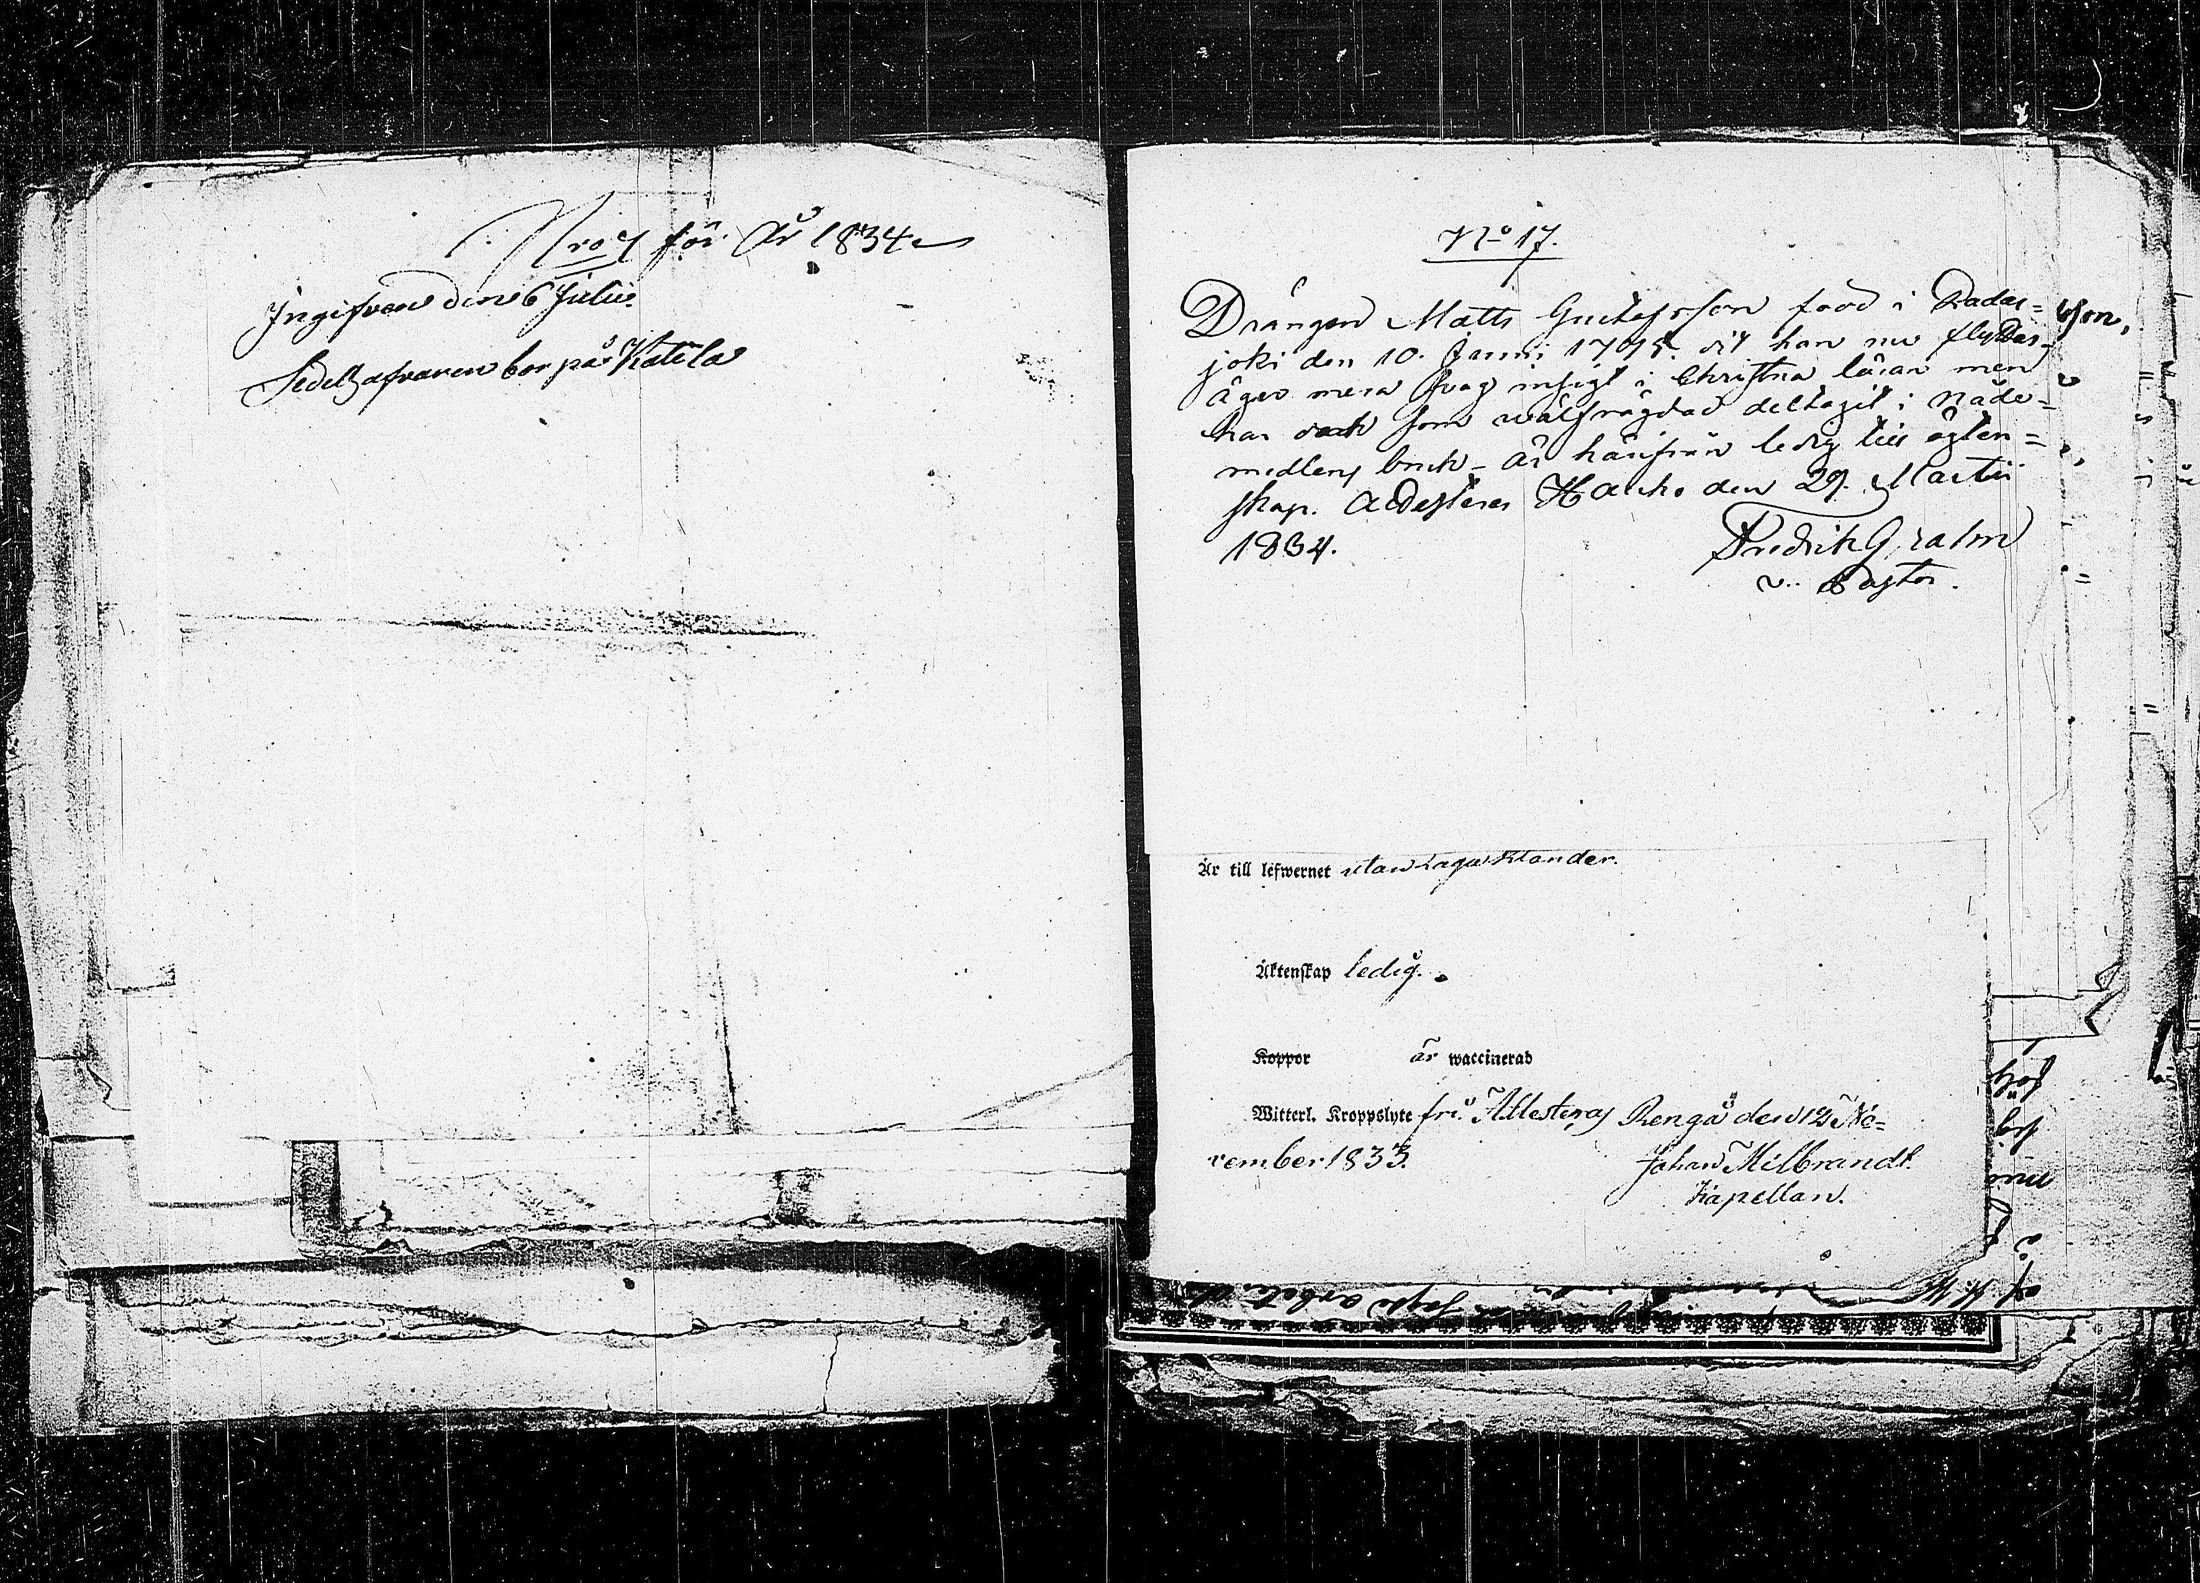 Nro 7 för år 1834
Ingifven den 6 Julii.
Sedelhafvaren bor på Katila
No 17.
Drängen Matts Gustafsson född i Padas=
joki den 10. Junii 1795. dit han nu flyttar,
äger mera svag insigt i Christna läran men
har dock som wälfrägdad deltagit i nåde=
medlens bruk – är härifrån ledig till ägten=
skap. Attesteras Hauho den 29. Martii
1834.
Fredrik Gralm
v. Pastor.
Är till lefwernet utan Laga Klander.
Äktenskap ledig.
Koppor är waccinerad
Witterl. Kroppslyte fri. Attesteras Rengå den 12 No=
vember 1833.
Johan Milbrandt.
Kapellan.